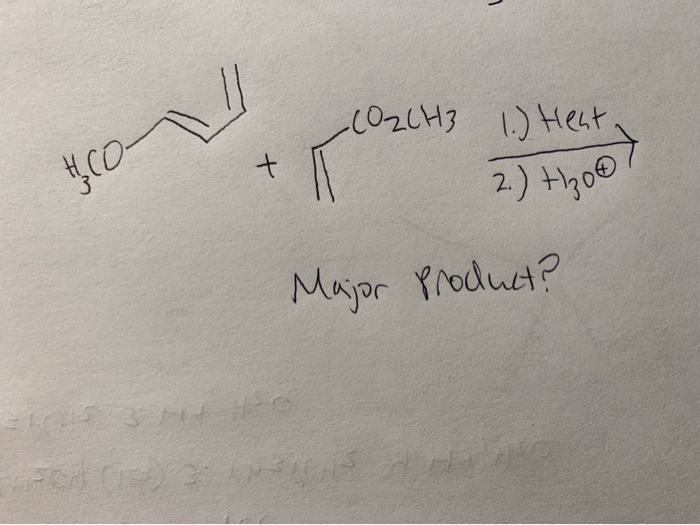 H3CO
+
CO2CH3
1.) Heat
2.) H3O⊕
Major product?